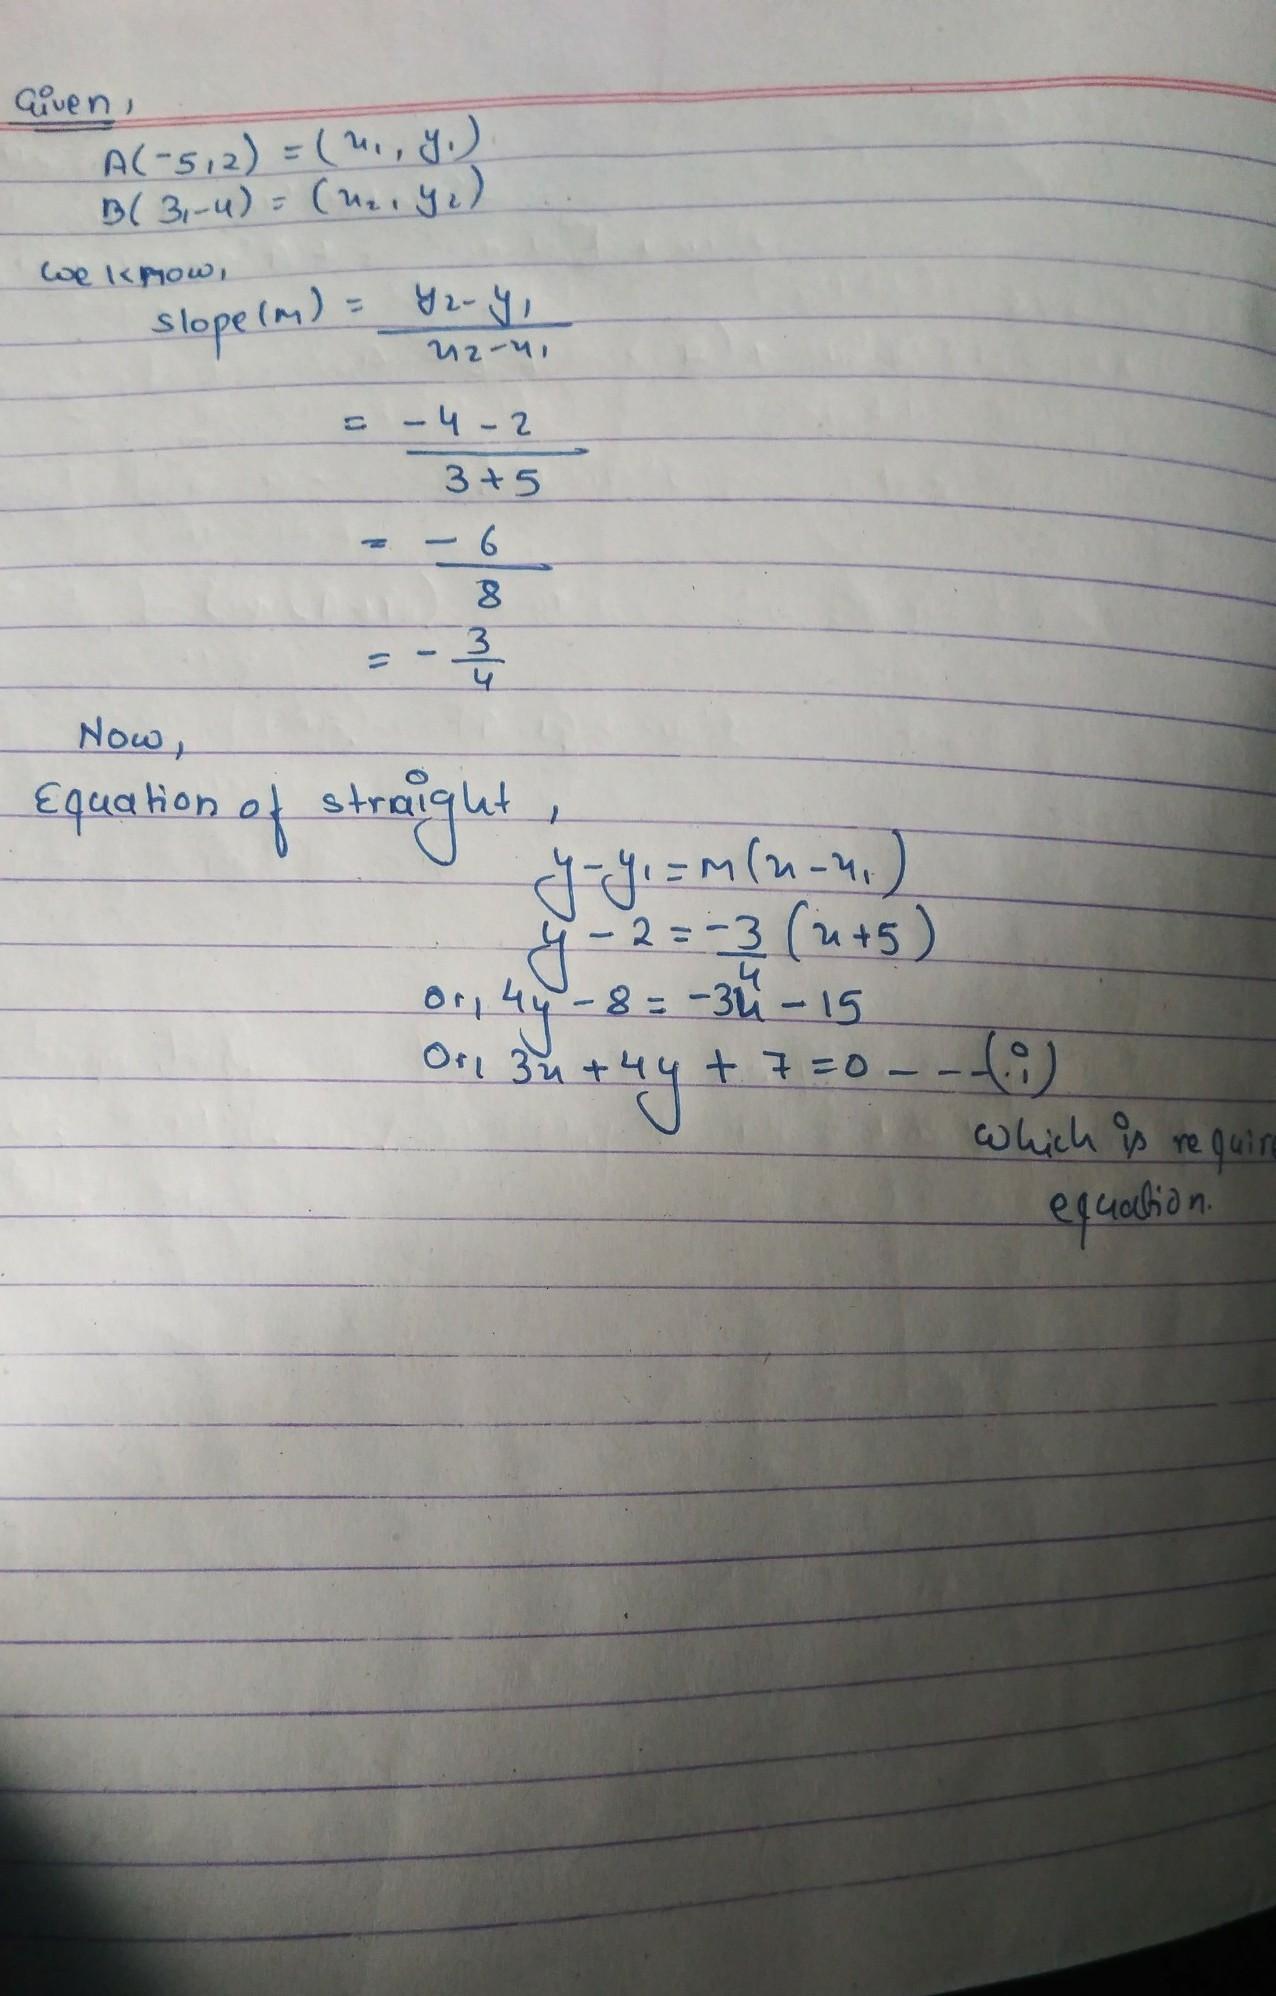 Given,
A(-5,2) = (x₁, y₁)
B(3,-4) = (x₂, y₂)
We know,
slope(m) = y₂-y₁
x₂-x₁
= -4-2
3+5
= -6
8
= -3
4
Now,
Equation of straight,
y-y₁=m(x-x₁)
y-2=-3/4(x+5)
or, 4y-8=-3x-15
Or, 3x+4y+7=0---(i)
which is requir
equation.